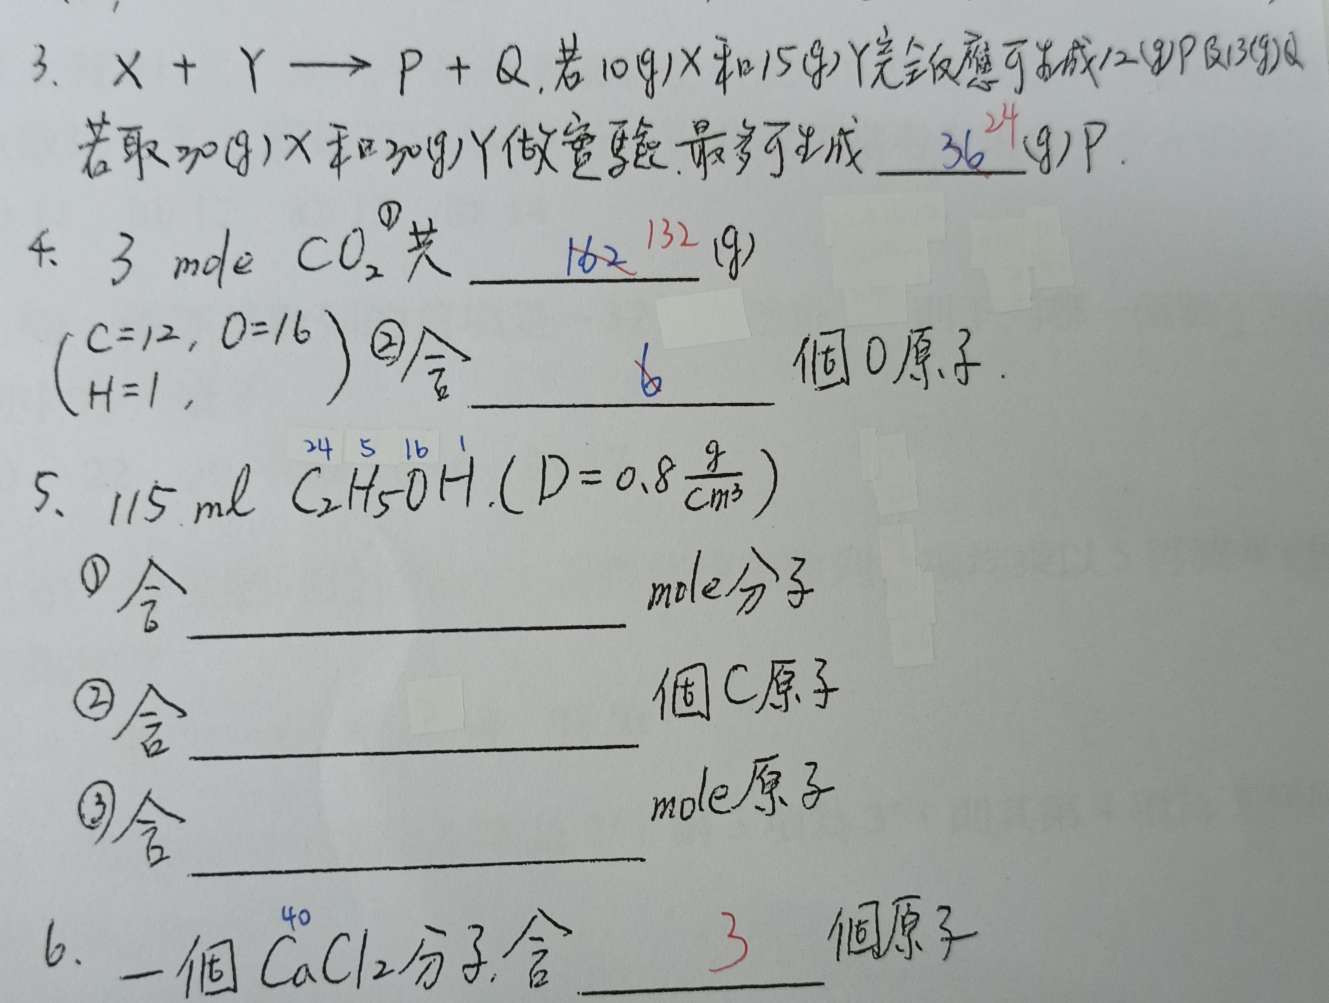 3. X + Y → P + Q. 若10(g)X和15(g)Y完全反應可生成12(g)P及13(g)Q
若取30(g)X和30(g)Y做實驗.最多可生成 36 24 (g)P.
4. 3 mole CO₂ ①共 162 132 (g)
(C=12, O=16
H=1, ) ②含 6 個O原子.
24 5 16 1
5. 115 ml C₂H₅OH. (D = 0.8 g/cm³)
①含 mole分子
②含 個C原子
③含 mole原子
40
6. 一個CaCl₂分子.含 3 個原子